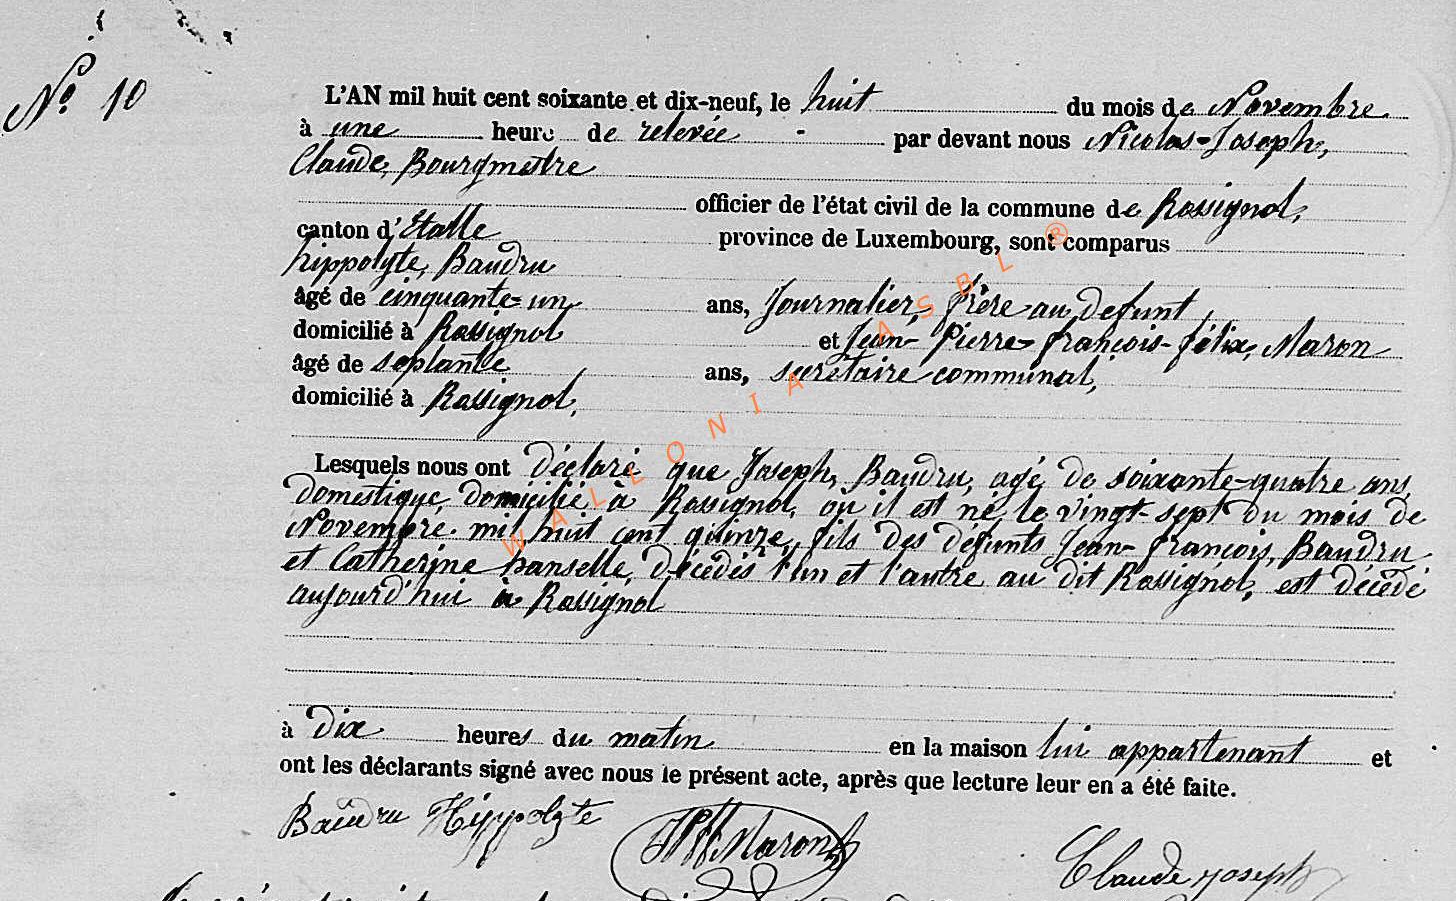 N° 10
L'AN mil huit cent soixante et dix-neuf, le huit du mois de Novembre
à une heure de relevée - par devant nous Nicolas-Joseph,
Claude, Bourgmestre
officier de l'état civil de la commune de Rossignol,
canton d'Etalle province de Luxembourg, sont comparus
hippolyte, Baudru
âgé de cinquante-un ans, Journalier, frère au defunt,
domicilié à Rossignol et Jean-Pierre-françois-félix, Maron
âgé de septante ans, secrétaire communal,
domicilié à Rossignol,
Lesquels nous ont déclaré que Joseph, Baudru, agé de soixante-quatre ans,
domestique, domicilié à Rossignol, où il est né, le vingt-sept du mois de
Novembre mil huit cent quinze, fils des défunts Jean-françois, Baudru
et Catherine hanselle, décédés l'un et l'autre au dit Rossignol, est décédé
aujourd'hui à Rossignol
à dix heures du matin en la maison lui appartenant et
ont les déclarants signé avec nous le présent acte, après que lecture leur en a été faite.
Baudru Hippolyte Maron Claude Joseph
WALLONIA ASBL ®